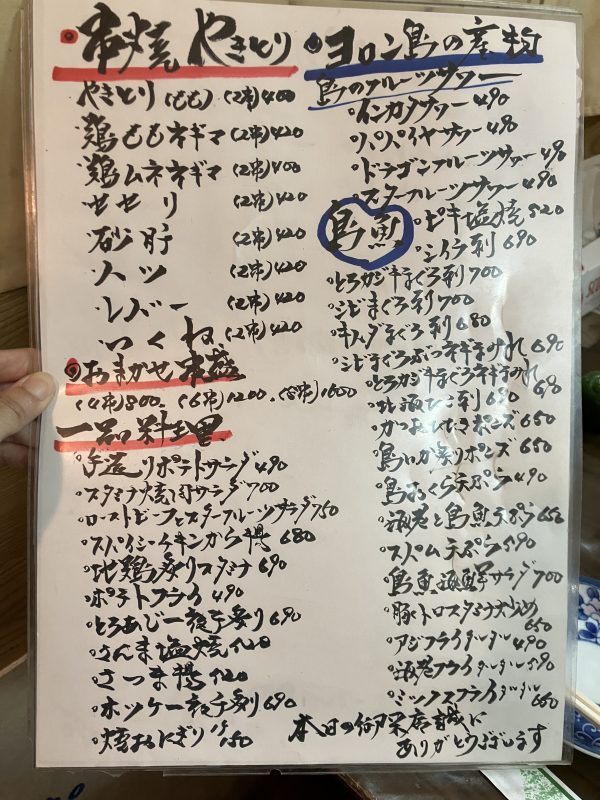 串焼 やきとり
やきとり(もも)(2串)400
鶏ももネギマ(2串)420
鶏ムネネギマ(2串)400
せせり(2串)420
砂肝(2串)420
ハツ(2串)420
レバー(2串)420
つくね(2串)420
おまかせ串盛
(4串)800.(6串)1200.(8串)1600
一品料理
手造りポテトサラダ490
スタミナ焼肉サラダ700
ローストビーフとスターフルーツサラダ750
スパイシーチキンから揚680
地鶏炙りスタミナ690
ポテトフライ490
とろあじ一夜干炙り690
さんま塩焼520
さつま揚520
ホッケ一夜干炙り690
焼おにぎり150
ヨロン島の産物
島のフルーツサワー
パパイヤサワー490
ドラゴンフルーツサワー490
スターフルーツサワー490
島魚
ピキ塩焼520
シイラ刺690
とろカジキまぐろ刺700
シビまぐろ刺700
キハダまぐろ刺680
シビまぐろぶつネギまみれ690
とろカジキまぐろネギまみれ690
かつおたたきポンズ650
島いか炙りポンズ650
島おくら天ぷら490
海老と島魚天ぷら650
スパム天ぷら590
島魚海鮮サラダ700
豚トロスタミナ炒め650
アジフライタルタル490
海老フライタルタル590
ミックスフライタルタル650
本日の御来店誠に
ありがとうございます